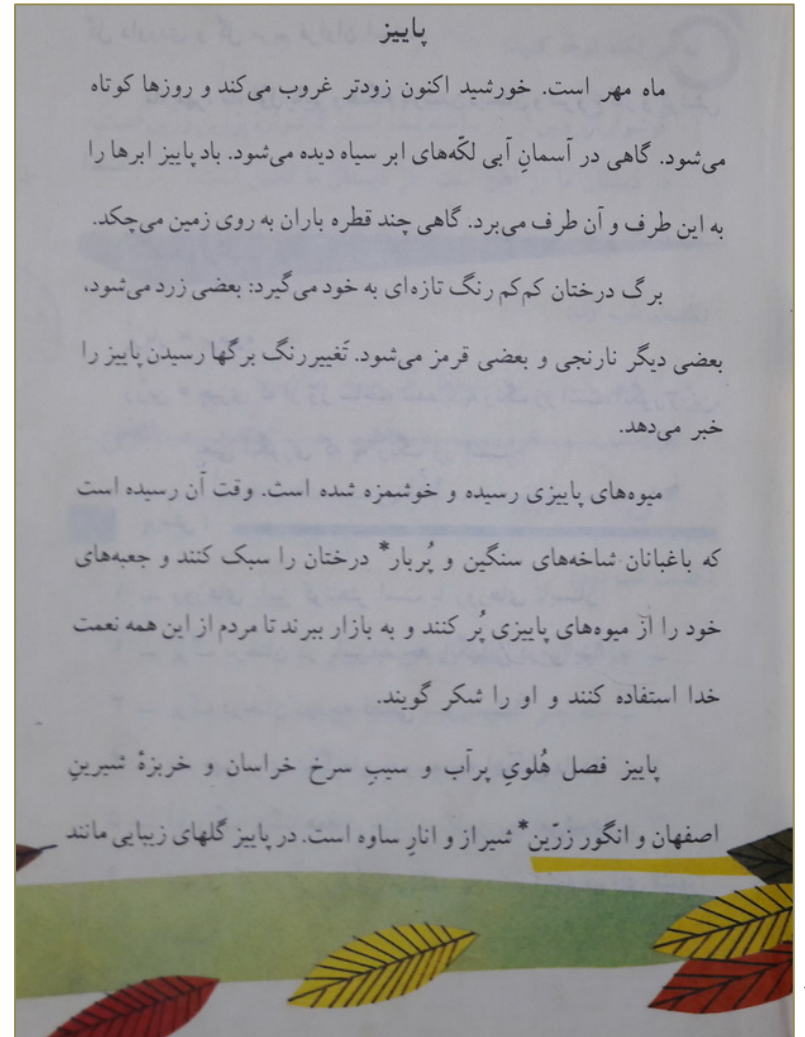 پاییز
ماه مهر است. خورشید اکنون زودتر غروب می‌کند و روزها کوتاه
می‌شود. گاهی در آسمانِ آبی لکّه‌های ابر سیاه دیده می‌شود. باد پاییز ابرها را
به این طرف و آن طرف می‌برد. گاهی چند قطره باران به روی زمین می‌چکد.
برگ درختان کم‌کم رنگ تازه‌ای به خود می‌گیرد: بعضی زرد می‌شود،
بعضی دیگر نارنجی و بعضی قرمز می‌شود. تَغییررنگ برگها رسیدن پاییز را
خبر می‌دهد.
میوه‌های پاییزی رسیده و خوشمزه شده است. وقت آن رسیده است
که باغبانان شاخه‌های سنگین و پُربار* درختان را سبک کنند و جعبه‌های
خود را از میوه‌های پاییزی پُر کنند و به بازار ببرند تا مردم از این همه نعمت
خدا استفاده کنند و او را شکر گویند.
پاییز فصل هُلویِ پرآب و سیبِ سرخ خراسان و خربزهٔ شیرینِ
اصفهان و انگور زرّین* شیراز و انارِ ساوه است. در پاییز گلهای زیبایی مانند